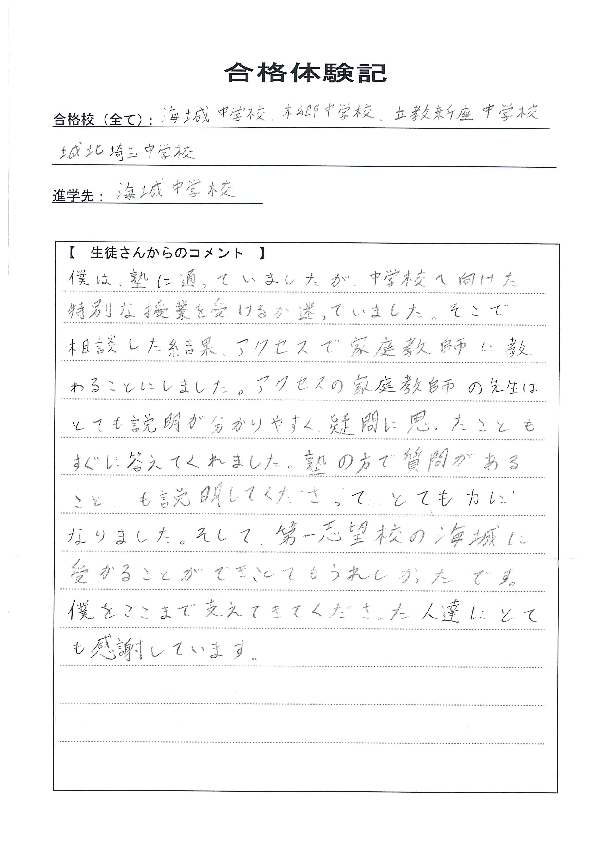 合格体験記
合格校（全て）：海城中学校、本郷中学校、立教新座中学校
城北埼玉中学校
進学先：海城中学校
【　生徒さんからのコメント　】
僕は、塾に通っていましたが、中学校へ向けた
特別な授業を受けるか迷っていました。そこで
相談した結果、アクセスで家庭教師に教
わることにしました。アクセスの家庭教師の先生は
とても説明が分かりやすく、疑問に思ったことも
すぐに答えてくれました。塾の方で質問がある
こと、も説明してくださって、とても力に
なりました。そして、第一志望校の海城に
受かることができとてもうれしかったです。
僕をここまで支えてきてくださった人達にとて
も感謝しています。